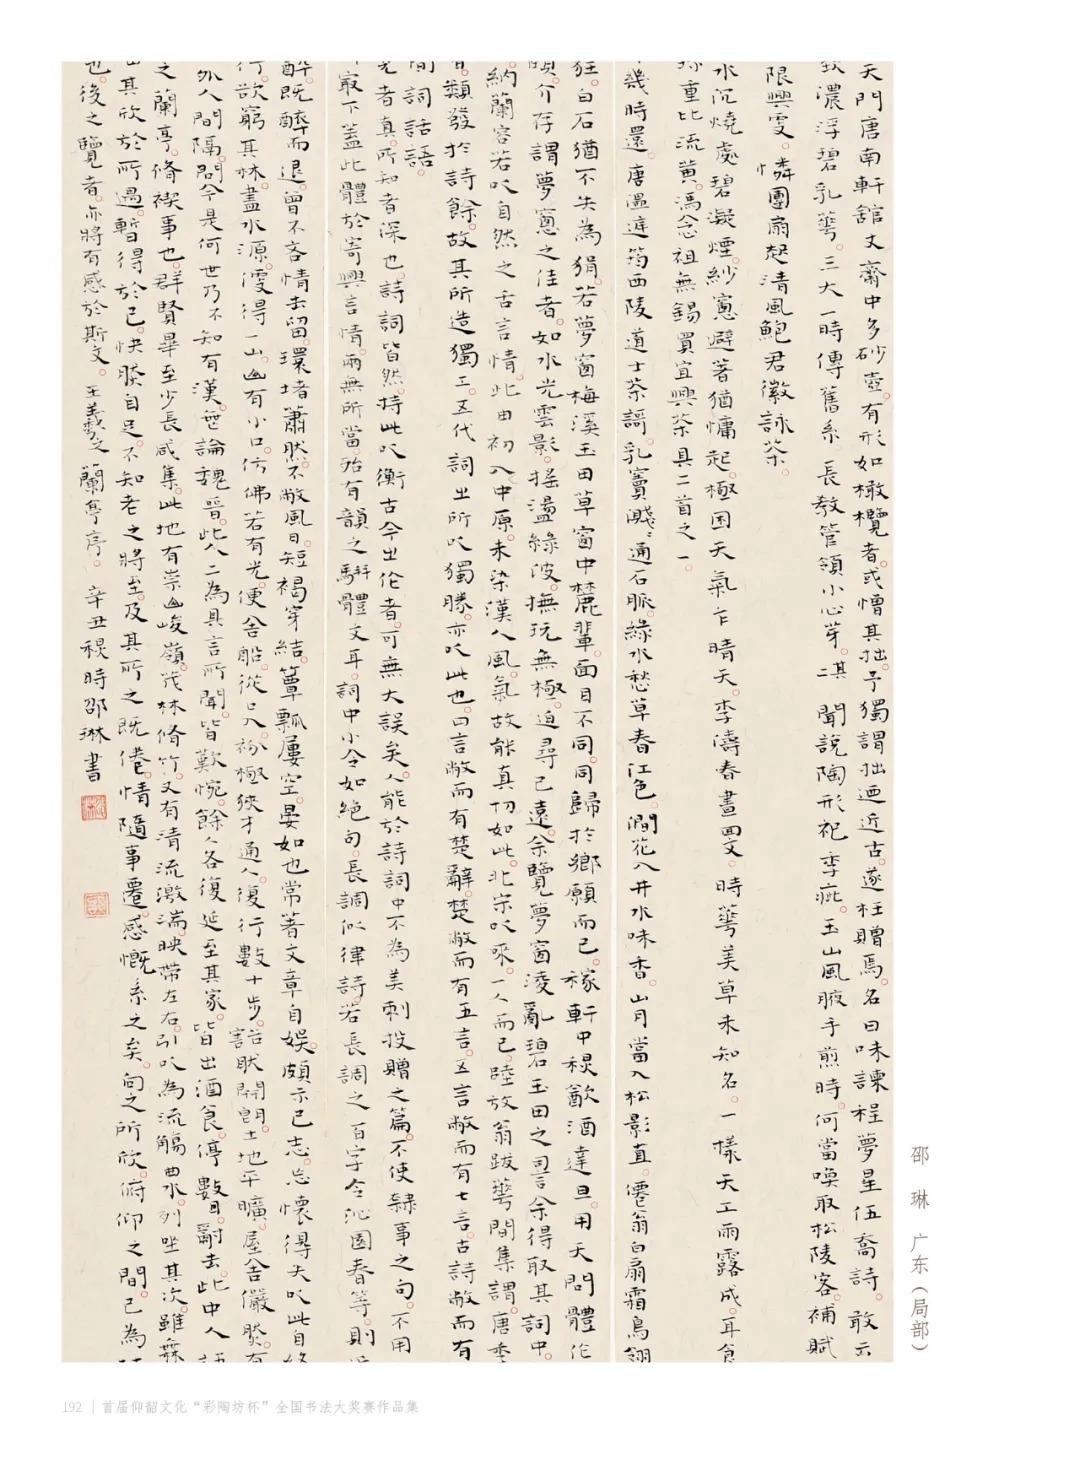 天門唐南軒舘丈齋中多砂壺。有形如橄欖者。或憎其拙。予獨謂拙迺近古。遂枉贈焉。名曰味諫程夢星伍喬詩。敢云
濃浮碧乳蕚。三大一時傳舊系。長教管領小心芽。二其聞說陶形祀季疵。玉山風腋手煎時。何當喚取松陵客。補賦
限興雯。憐團扇起清風鮑君徽詠茶。
水沉燒處碧凝煙。紗窻避著猶慵起。極困天氣乍晴天。李濤春晝回文。時蕚美草未知名。一樣天工雨露成。耳食
重比流黃。馮念祖無錫買宜興茶具二首之一。
幾時還。唐溫庭筠西陵道士茶謌。乳竇濺濺通石脈。綠水愁草春江色。澗花入井水味香。山月當入松影直。僊翁白扇霜鳥翎
狂。白石猶不失為狷。若夢窗梅溪玉田草窗中麓輩。面目不同。同歸於鄉愿而已。稼軒中秋飲酒達旦。用天問體作
頤。介存謂夢窻之佳者。如水光雲影。搖盪綠波。撫玩無極。追尋已遠。余覽夢窗凌亂碧玉田之詞言余得取其詞中。
納蘭容若以自然之舌言情。此由初入中原。未染漢人風氣。故能真切如此。北宋以來。一人而已。陸放翁跋蕚間集謂。唐季
類發於詩餘。故其所造獨工。五代詞出所以獨勝。亦以此也。四言敝而有楚辭。楚敝而有五言。五言敝而有七言。古詩敝而有
間詞話語。
者真。所知者深也。詩詞皆然。持此以衡古今出作者。可無大誤矣。人能於詩詞中不為美刺投贈之篇。不使隸事之句。不用
寂下蓋此體於寄興言情。兩無所當。殆有韻之駢體文耳。詞中小令如絕句。長調似律詩。若長調之百字令沁園春等。則
醉。既醉而退。曾不吝情去留。環堵蕭然。不敝風日。短褐穿結。簞瓢屢空。晏如也常著文章自娛。頗示己志。忘懷得失以此自終
行。欲窮其林。盡水源。便得一山。山有小口。仿佛若有光。便舍船。從口入。初極狹才通人復行數十步。豁肰開朗。土地平曠。屋舍儼肰。有
外人間隔。問今是何世乃不知有漢。無論魏晉。此人二為具言所聞。皆歎惋。餘人各復延至其家。皆出酒食。停數日。辭去。此中人語
之蘭亭。脩禊事也。群賢畢至。少長咸集。此地有崇山峻嶺。茂林脩竹。又有清流激湍。映帶左右。引以為流觴曲水。列坐其次。雖無
其欣於所遇。暫得於己。快然自足。不知老之將至。及其所之既倦。情隨事遷。感慨系之矣。向之所欣。俯仰之間。已為
也。後之覽者。亦將有感於斯文。王羲之蘭亭序。辛丑秋時邵琳書
邵 琳 广东（局部）
192 | 首届仰韶文化“彩陶坊杯”全国书法大奖赛作品集